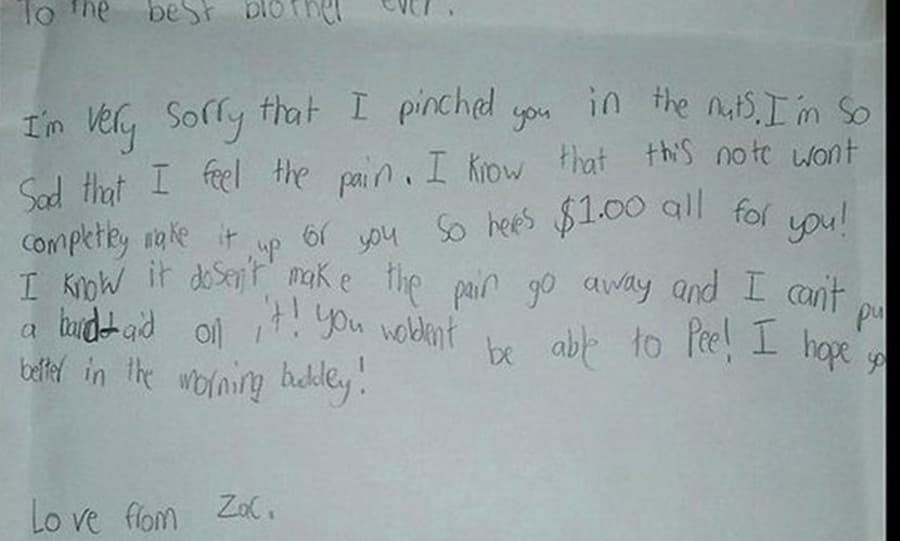 To the best brother ever.
I'm very sorry that I pinched you in the nuts. I'm so
Sad that I feel the pain. I know that this note wont
completley make it up for you so heres $1.00 all for you!
I know it dosen't make the pain go away and I can't pu
a bandaid on it! You woldent be able to Pee! I hope yo
better in the morning buddey!
Love from Zac.